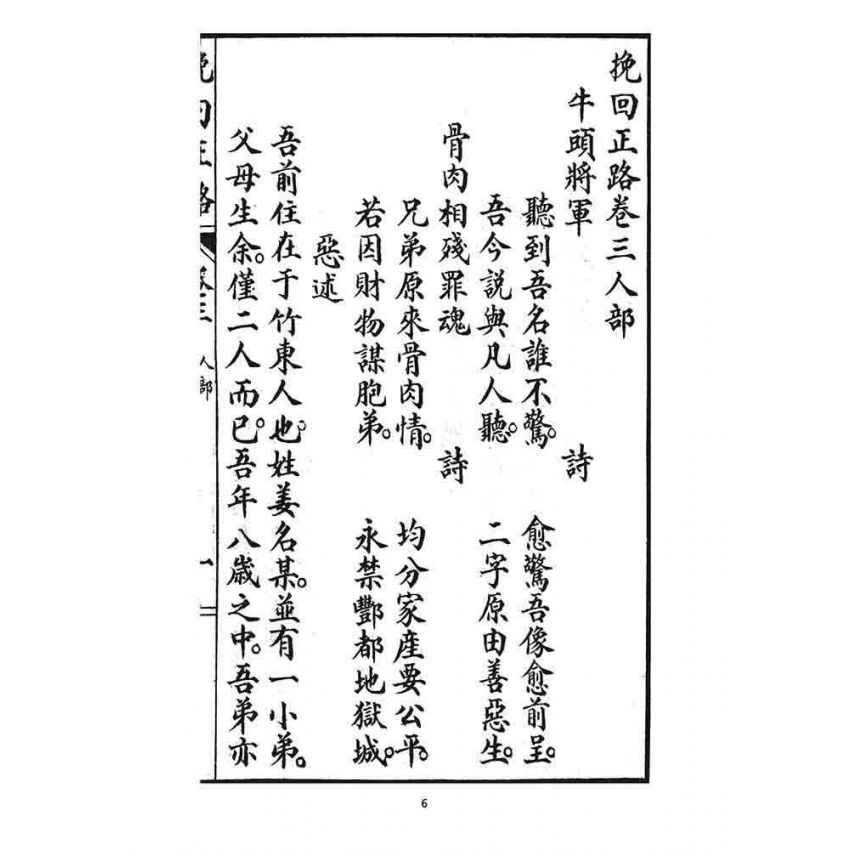 挽回正路卷三人部
牛頭將軍 詩
聽到吾名誰不驚。 愈驚吾像愈前呈。
吾今説與凡人聽。 二字原由善惡生。
骨肉相殘罪魂 詩
兄弟原來骨肉情。 均分家産要公平。
若因財物謀胞弟。 永禁酆都地獄城。
惡述
吾前住在于竹東人也。姓姜名某。並有一小弟。
父母生余。僅二人而已。吾年八歲之中。吾弟亦
挽回正路 卷三 人部 一
6